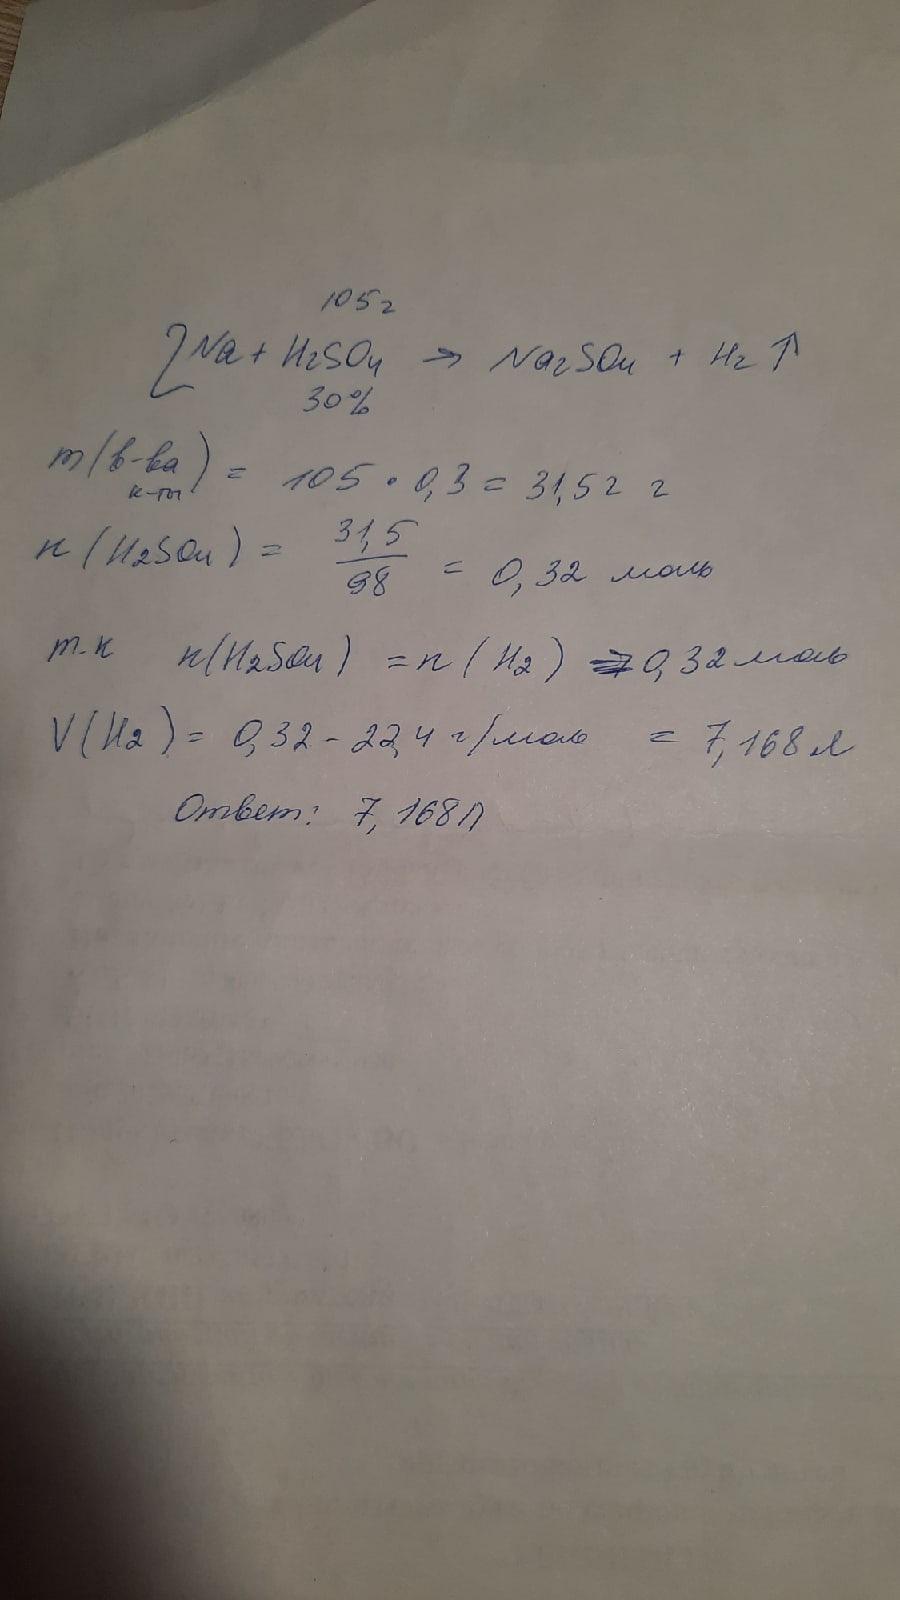 105 г
2Na + H2SO4 → Na2SO4 + H2 ↑
30%
m(в-ва к-ты) = 105 · 0,3 = 31,5 г г
n(H2SO4) = 31,5/98 = 0,32 моль
т.к n(H2SO4) = n(H2) = 0,32 моль
V(H2) = 0,32 - 22,4 г/моль = 7,168 л
Ответ: 7,168 л